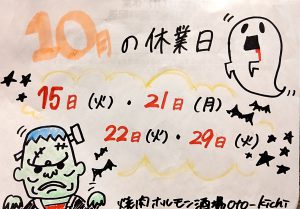 10月の休業日
15日(火)・21日(月)
22日(火)・29日(火)
焼肉ホルモン酒場oto-kichi